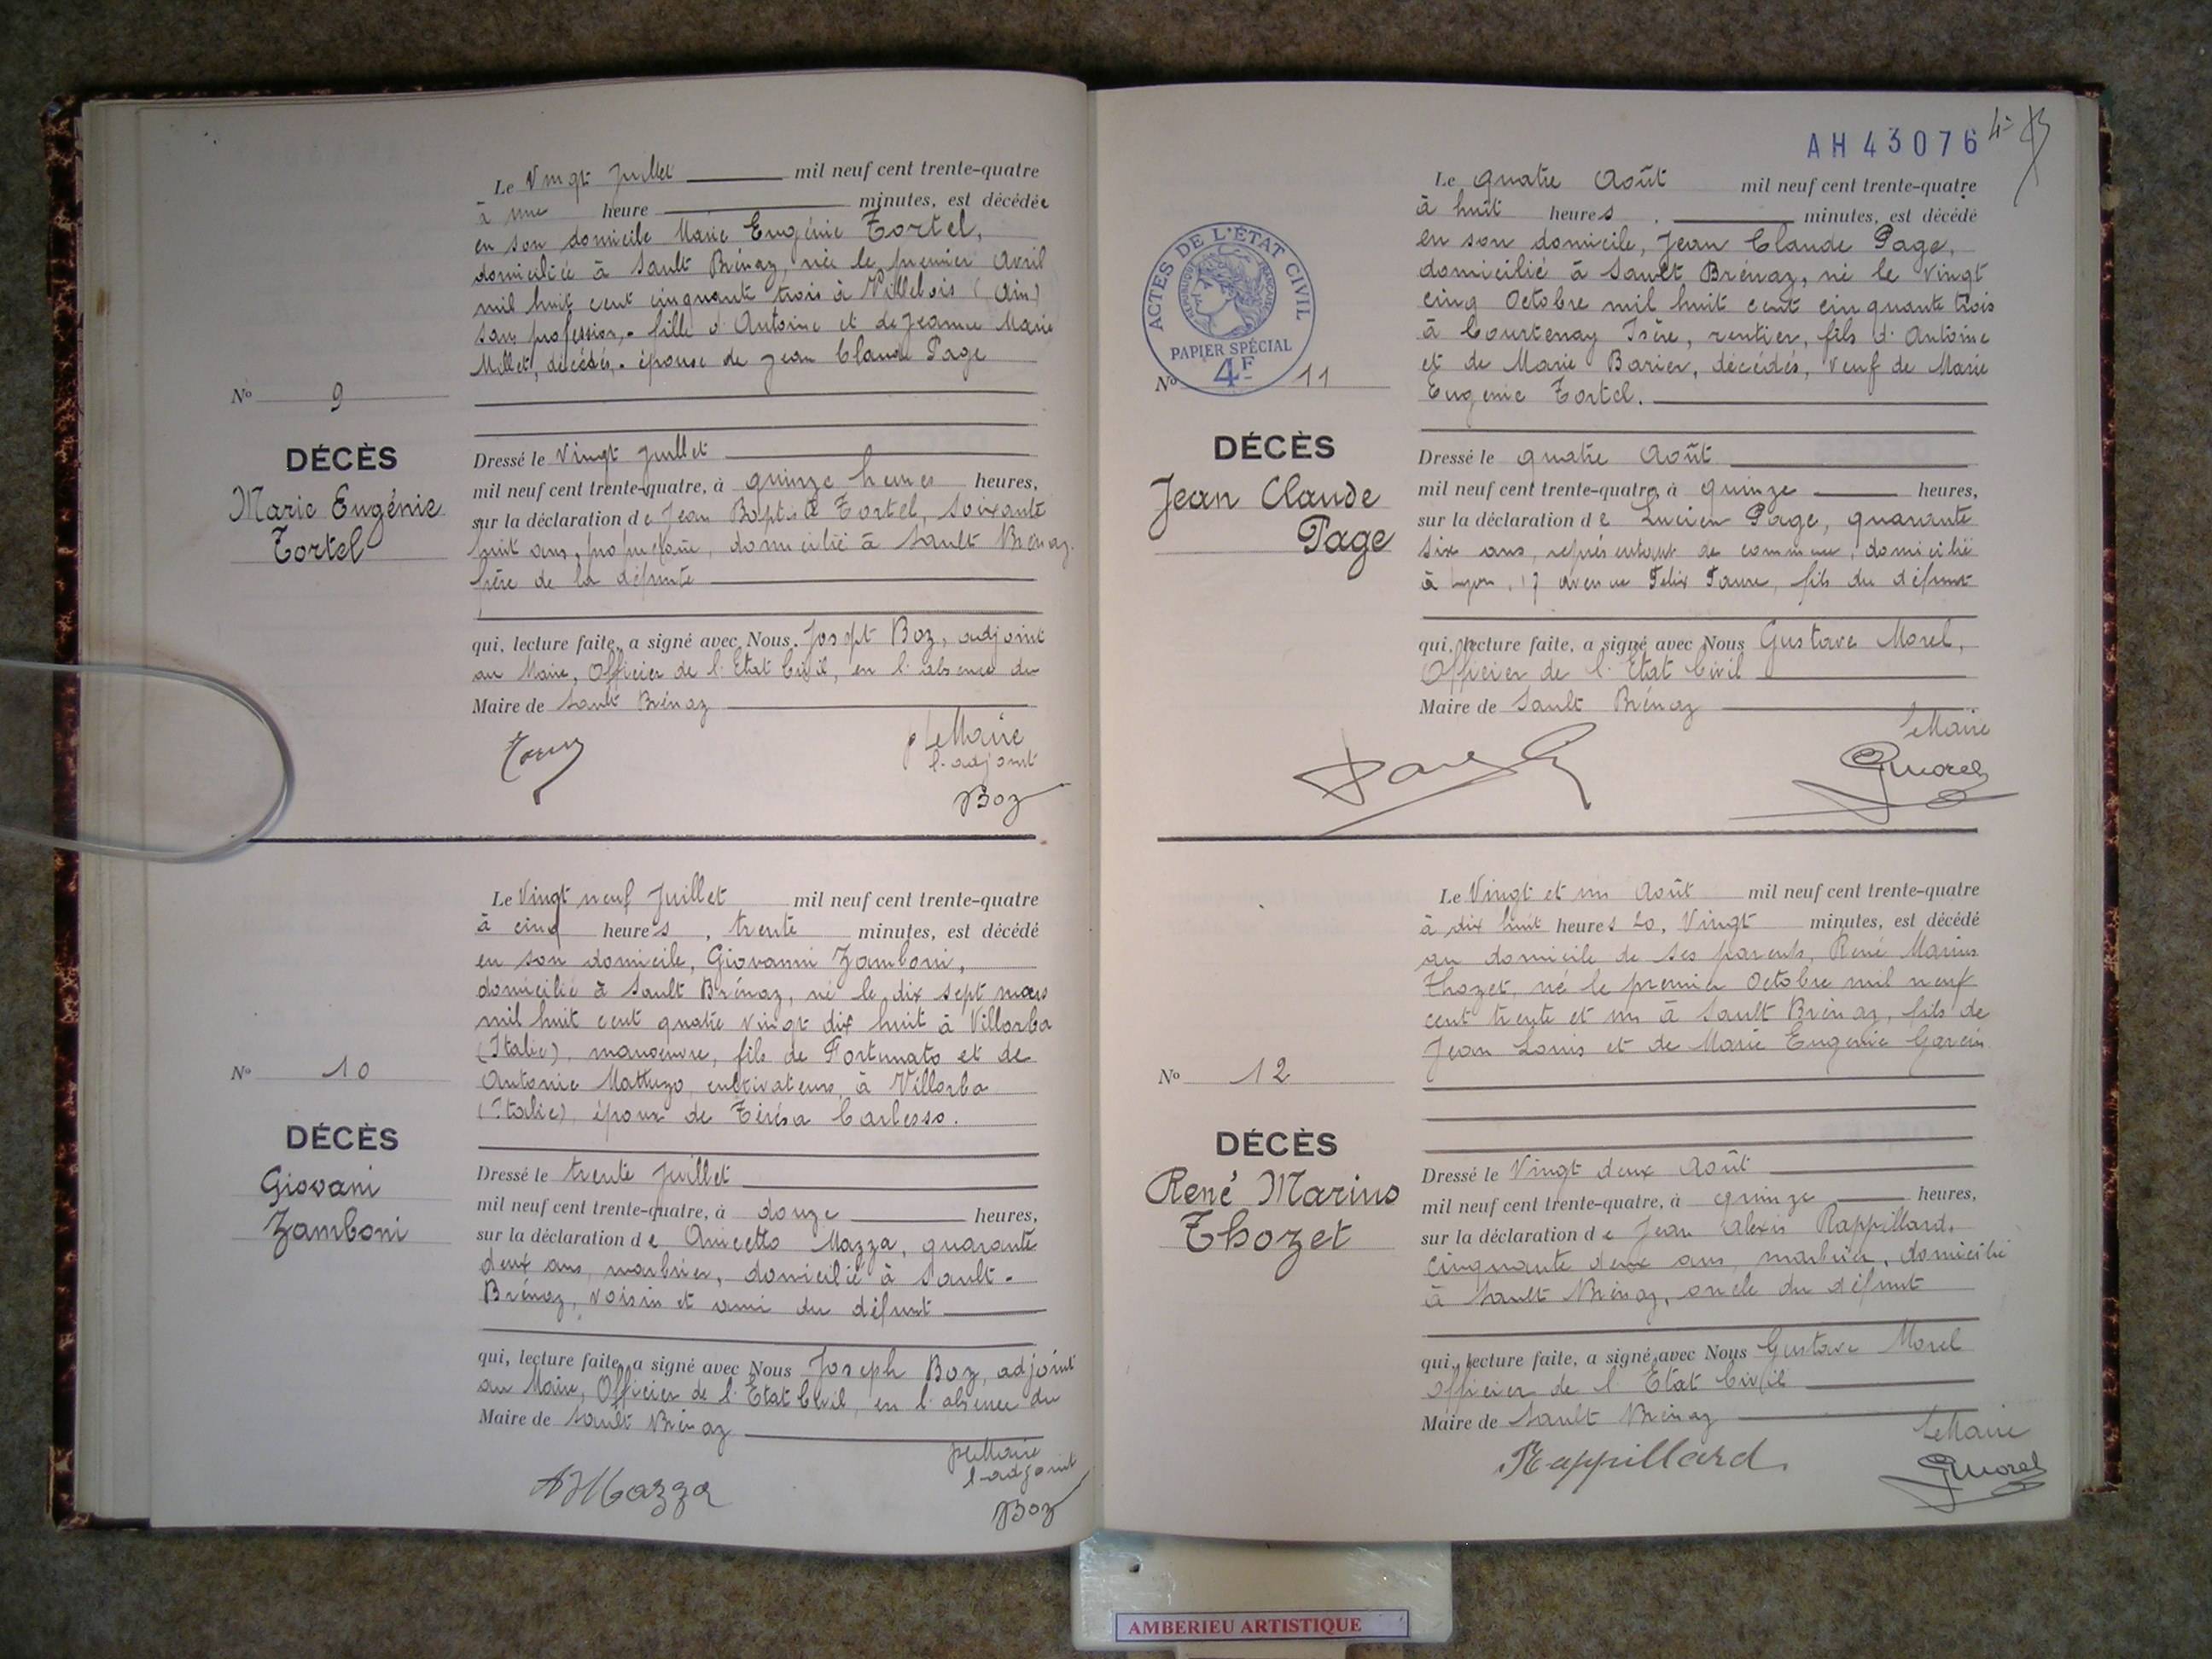 Le Vingt Juillet mil neuf cent trente-quatre
à une heure minutes, est décédée
en son domicile Marie Eugénie Tortel,
domiciliée à Sault Brénaz, née le premier Avril
mil huit cent cinquante trois à Villebois (Ain)
sans profession, - fille d'Antoine et de Jeanne Marie
Millet, décédés, - épouse de Jean Claude Page
No 9
DÉCÈS
Marie Eugénie
Tortel
Dressé le Vingt Juillet
mil neuf cent trente-quatre, à quinze heures heures,
sur la déclaration de Jean Baptiste Tortel, soixante
huit ans, propriétaire, domicilié à Sault Brénaz.
frère de la défunte
qui, lecture faite, a signé avec Nous. Josept Boz, adjoint
au Maire, Officier de l'Etat Civil, en l'absence du
Maire de Sault Brénaz
p le Maire
l'adjoint
Boz
Le Vingt neuf Juillet mil neuf cent trente-quatre
à cinq heures, trente minutes, est décédé
en son domicile, Giovanni Zamboni,
domicilié à Sault Brénaz, né le dix sept mars
mil huit cent quatre vingt dix huit à Villorba
(Italie), manoeuvre, fils de Fortunato et de
Antonie Mattuzo, cultivateurs, à Villorba
(Italie), époux de Térésa Carlesso.
No 10
DÉCÈS
Giovani
Zamboni
Dressé le trente Juillet
mil neuf cent trente-quatre, à douze heures,
sur la déclaration de Anicetto Mazza, quarante
deux ans, marbrier, domicilié à Sault-
Brénaz, voisin et ami du défunt
qui, lecture faite, a signé avec Nous Joseph Boz, adjoint
au Maire, Officier de l'Etat Civil, en l'absence du
Maire de Sault Brénaz
p le Maire
l'adjoint
AMazza
Boz
AH 43076
Le quatre Août mil neuf cent trente-quatre
à huit heures. minutes, est décédé
en son domicile, Jean Claude Page,
domicilié à Sault Brénaz, né le vingt
cinq Octobre mil huit cent cinquante trois
à Courtenay Isère, rentier, fils d'Antoine
et de Marie Barier, décédés, veuf de Marie
Eugénie Tortel.
ACTES DE L'ÉTAT CIVIL
RÉPUBLIQUE FRANÇAISE
PAPIER SPÉCIAL
4F
No 11
DÉCÈS
Jean Claude
Page
Dressé le quatre Août
mil neuf cent trente-quatre, à quinze heures,
sur la déclaration de Lucien Page, quarante
six ans, représentant de commerce, domicilié
à Lyon, 17 avenue Félix Faure, fils du défunt
qui, lecture faite, a signé avec Nous Gustave Morel,
Officier de l'Etat Civil
Maire de Sault Brénaz
Le Maire
GMorel
Le Vingt et un Août mil neuf cent trente-quatre
à dix huit heures 20, Vingt minutes, est décédé
au domicile de ses parents, René Marius
Thozet, né le premier Octobre mil neuf
cent trente et un à Sault Brénaz, fils de
Jean Louis et de Marie Eugénie Garcin
No 12
DÉCÈS
René Marius
Thozet
Dressé le Vingt deux Août
mil neuf cent trente-quatre, à quinze heures,
sur la déclaration de Jean Alexis Rappillard,
cinquante deux ans, marbrier, domicilié
à Sault Brénaz, oncle du défunt
qui, lecture faite, a signé avec Nous Gustave Morel
Officier de l'Etat Civil
Maire de Sault Brénaz
Le Maire
Rappillard
GMorel
AMBERIEU ARTISTIQUE